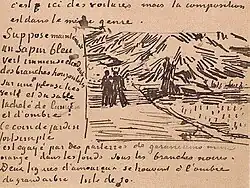 c'est ici des voitures mais la composition
est dans le même genre.
Suppose maintenant
un sapin bleu
vert immense étend
des branches horizontales
sur une pelouse très
verte et du sable
tacheté de lumière
et d'ombre.
Ce coin de jardin
fort simple
est égayé par des parterres de géraniums mine
orange dans les fonds sous les branches noires.
Deux figures d'amoureux se trouvent à l'ombre
du grand arbre toile de 30.